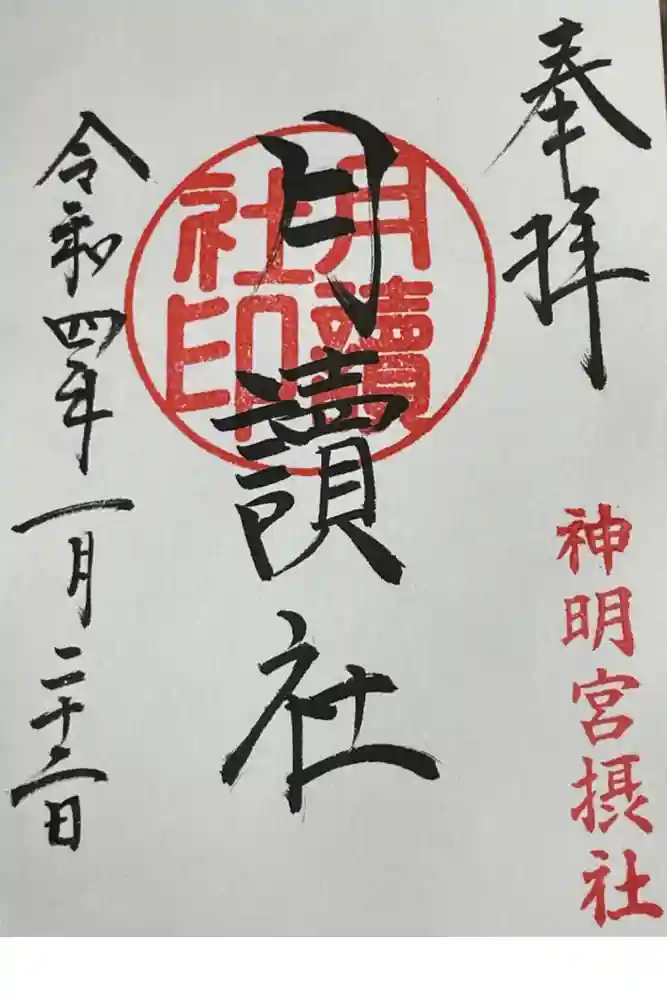 奉拝
神明宮摂社
月讀社
月讀
社印
令和四年一月二十二日